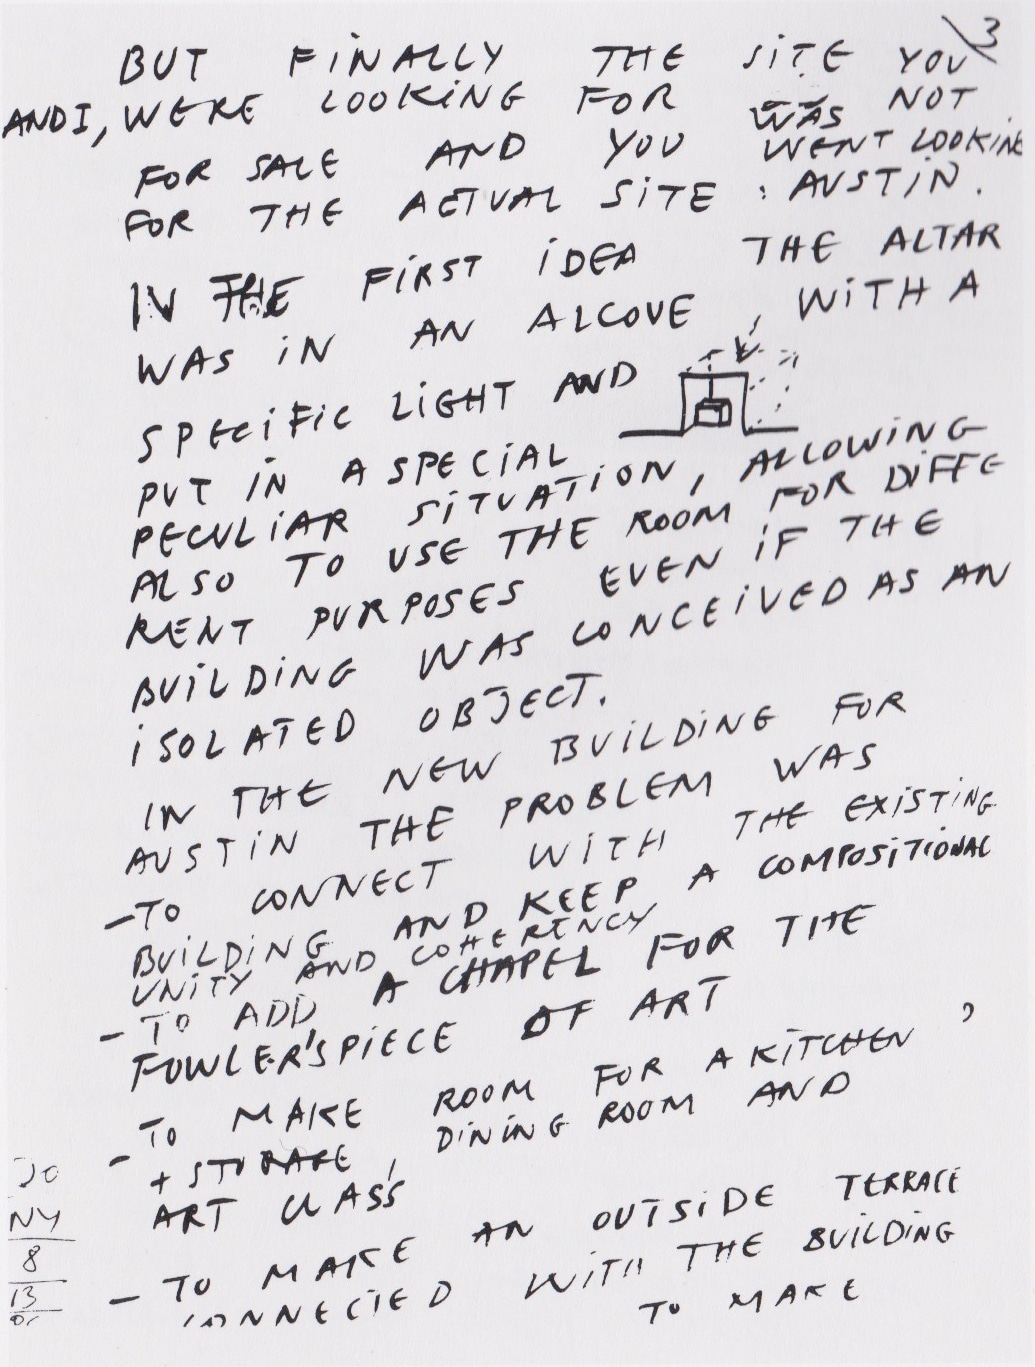 3
BUT FINALLY THE SITE YOU
AND I, WERE LOOKING FOR WAS NOT
FOR SALE AND YOU WENT LOOKING
FOR THE ACTUAL SITE : AUSTIN.
IN THE FIRST IDEA THE ALTAR
WAS IN AN ALCOVE, WITH A
SPECIFIC LIGHT AND
PUT IN A SPECIAL
PECULIAR SITUATION, ALLOWING
ALSO TO USE THE ROOM FOR DIFFE
RENT PURPOSES EVEN IF THE
BUILDING WAS CONCEIVED AS AN
ISOLATED OBJECT.
IN THE NEW BUILDING FOR
AUSTIN THE PROBLEM WAS
- TO CONNECT WITH THE EXISTING
BUILDING AND KEEP A COMPOSITIONAL
UNITY AND COHERENCY
- TO ADD A CHAPEL FOR THE
FOWLER'S PIECE OF ART
- TO MAKE ROOM FOR A KITCHEN,
+ STORAGE, DINING ROOM AND
ART CLASS
- TO MAKE AN OUTSIDE TERRACE
CONNECTED WITH THE BUILDING
TO MAKE
NY
8
13